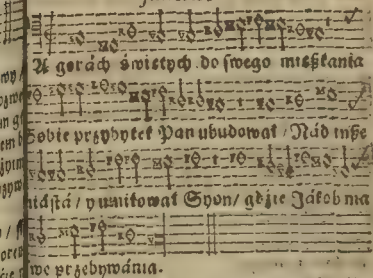 A gorách świętych do swego mieszkánia
Sobie przybytek Pan ubudował / Nád insze
miástá / y umiłował Syon / gdzie Jákob ma
swe przebywánia.